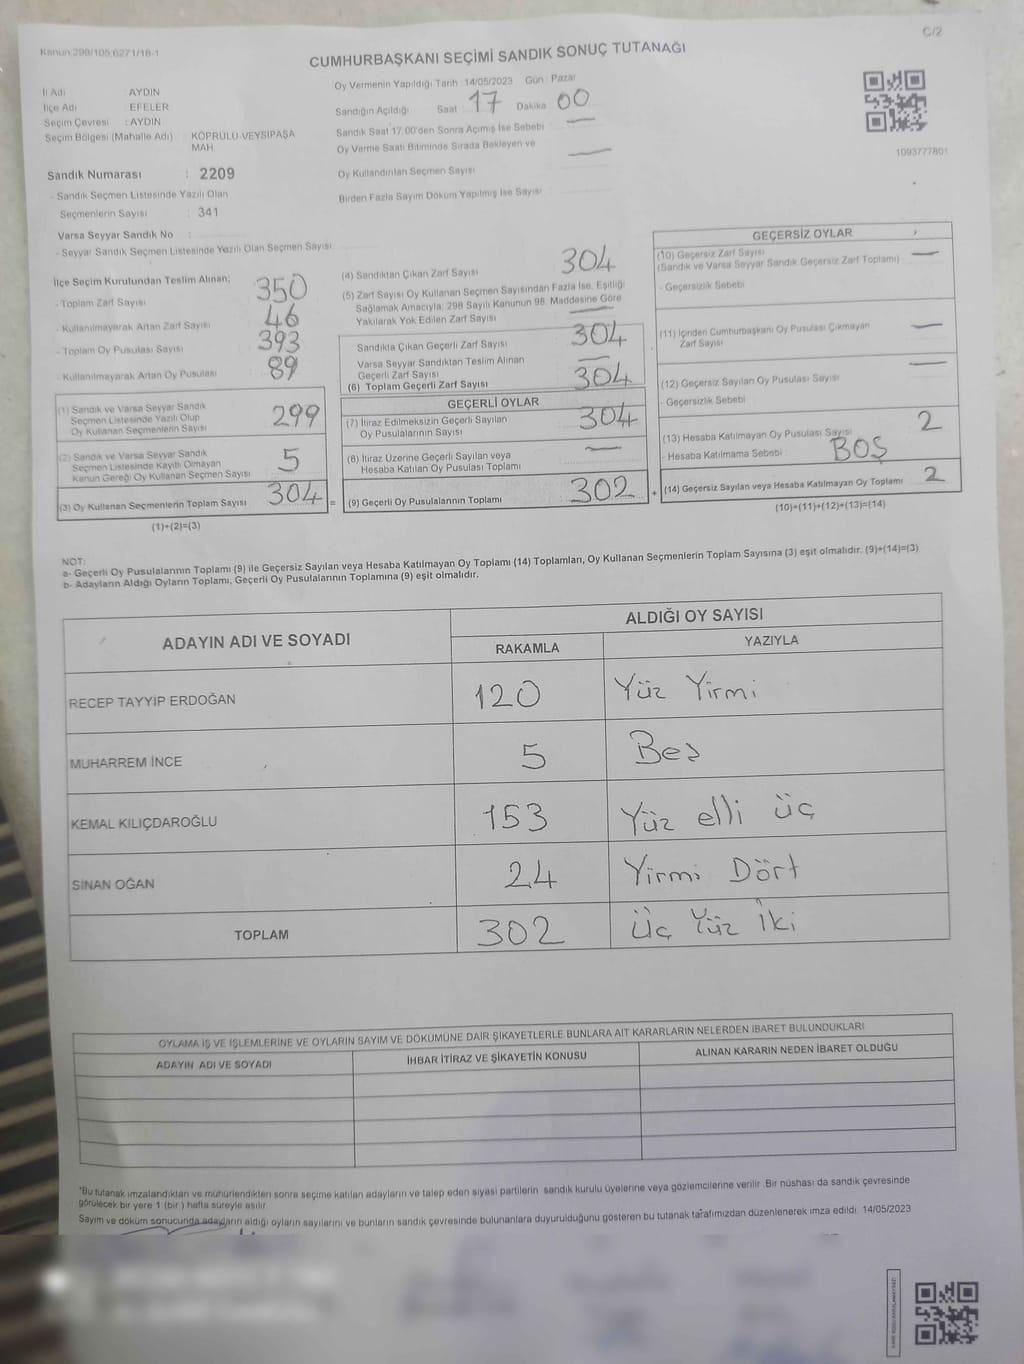 Kanun 298/105,6271/18-1
C/2
CUMHURBAŞKANI SEÇİMİ SANDIK SONUÇ TUTANAĞI
İl Adı AYDIN
İlçe Adı EFELER
Seçim Çevresi : AYDIN
Seçim Bölgesi (Mahalle Adı) : KÖPRÜLÜ-VEYSİPAŞA MAH
Sandık Numarası : 2209
- Sandık Seçmen Listesinde Yazılı Olan
Seçmenlerin Sayısı : 341
Varsa Seyyar Sandık No :
- Seyyar Sandık Seçmen Listesinde Yazılı Olan Seçmen Sayısı
Oy Vermenin Yapıldığı Tarih :14/05/2023 Gün : Pazar
Sandığın Açıldığı Saat : 17 Dakika 00
Sandık Saat 17.00'den Sonra Açımış İse Sebebi —
Oy Verme Saati Bitiminde Sırada Bekleyen ve
Oy Kullandırılan Seçmen Sayısı —
Birden Fazla Sayım Döküm Yapılmış İse Sayısı
1093777801
İlçe Seçim Kurulundan Teslim Alınan;
- Toplam Zarf Sayısı 350
- Kullanılmayarak Artan Zarf Sayısı 46
- Toplam Oy Pusulası Sayısı 393
- Kullanılmayarak Artan Oy Pusulası 89
(1) Sandık ve Varsa Seyyar Sandık
Seçmen Listesinde Yazılı Olup
Oy Kullanan Seçmenlerin Sayısı 299
(2) Sandık ve Varsa Seyyar Sandık
Seçmen Listesinde Kayıtlı Olmayan
Kanun Gereği Oy Kullanan Seçmen Sayısı 5
(3) Oy Kullanan Seçmenlerin Toplam Sayısı 304 =
(1)+(2)=(3)
(4) Sandıktan Çıkan Zarf Sayısı 304
(5) Zarf Sayısı Oy Kullanan Seçmen Sayısından Fazla İse, Eşitliği
Sağlamak Amacıyla; 298 Sayılı Kanunun 98. Maddesine Göre
Yakılarak Yok Edilen Zarf Sayısı —
Sandıkta Çıkan Geçerli Zarf Sayısı 304
Varsa Seyyar Sandıktan Teslim Alınan
Geçerli Zarf Sayısı —
(6) Toplam Geçerli Zarf Sayısı 304
GEÇERLİ OYLAR
(7) İtiraz Edilmeksizin Geçerli Sayılan
Oy Pusulalarının Sayısı 304
(8) İtiraz Üzerine Geçerli Sayılan veya
Hesaba Katılan Oy Pusulası Toplamı —
(9) Geçerli Oy Pusulalarının Toplamı 302 +
GEÇERSİZ OYLAR
(10) Geçersiz Zarf Sayısı —
(Sandık ve Varsa Seyyar Sandık Geçersiz Zarf Toplamı)
- Geçersizlik Sebebi
(11) İçinden Cumhurbaşkanı Oy Pusulası Çıkmayan
Zarf Sayısı —
(12) Geçersiz Sayılan Oy Pusulası Sayısı —
- Geçersizlik Sebebi
(13) Hesaba Katılmayan Oy Pusulası Sayısı 2
- Hesaba Katılmama Sebebi : BOŞ
(14) Geçersiz Sayılan veya Hesaba Katılmayan Oy Toplamı 2
(10)+(11)+(12)+(13)=(14)
NOT:
a- Geçerli Oy Pusulalarının Toplamı (9) ile Geçersiz Sayılan veya Hesaba Katılmayan Oy Toplamı (14) Toplamları, Oy Kullanan Seçmenlerin Toplam Sayısına (3) eşit olmalıdır. (9)+(14)=(3)
b- Adayların Aldığı Oyların Toplamı, Geçerli Oy Pusulalarının Toplamına (9) eşit olmalıdır.
ADAYIN ADI VE SOYADI
ALDIĞI OY SAYISI
RAKAMLA YAZIYLA
RECEP TAYYİP ERDOĞAN 120 Yüz Yirmi
MUHARREM İNCE 5 Beş
KEMAL KILIÇDAROĞLU 153 Yüz elli üç
SİNAN OĞAN 24 Yirmi Dört
TOPLAM 302 Üç Yüz İki
OYLAMA İŞ VE İŞLEMLERİNE VE OYLARIN SAYIM VE DÖKÜMÜNE DAİR ŞİKAYETLERLE BUNLARA AİT KARARLARIN NELERDEN İBARET BULUNDUKLARI
ADAYIN ADI VE SOYADI İHBAR İTİRAZ VE ŞİKAYETİN KONUSU ALINAN KARARIN NEDEN İBARET OLDUĞU
*Bu tutanak imzalandıktan ve mühürlendikten sonra seçime katılan adayların ve talep eden siyasi partilerin sandık kurulu üyelerine veya gözlemcilerine verilir. Bir nüshası da sandık çevresinde
görülecek bir yere 1 (bir) hafta süreyle asılır.
Sayım ve döküm sonucunda adayların aldığı oyların sayılarını ve bunların sandık çevresinde bulunanlara duyurulduğunu gösteren bu tutanak tarafımızdan düzenlenerek imza edildi. 14/05/2023